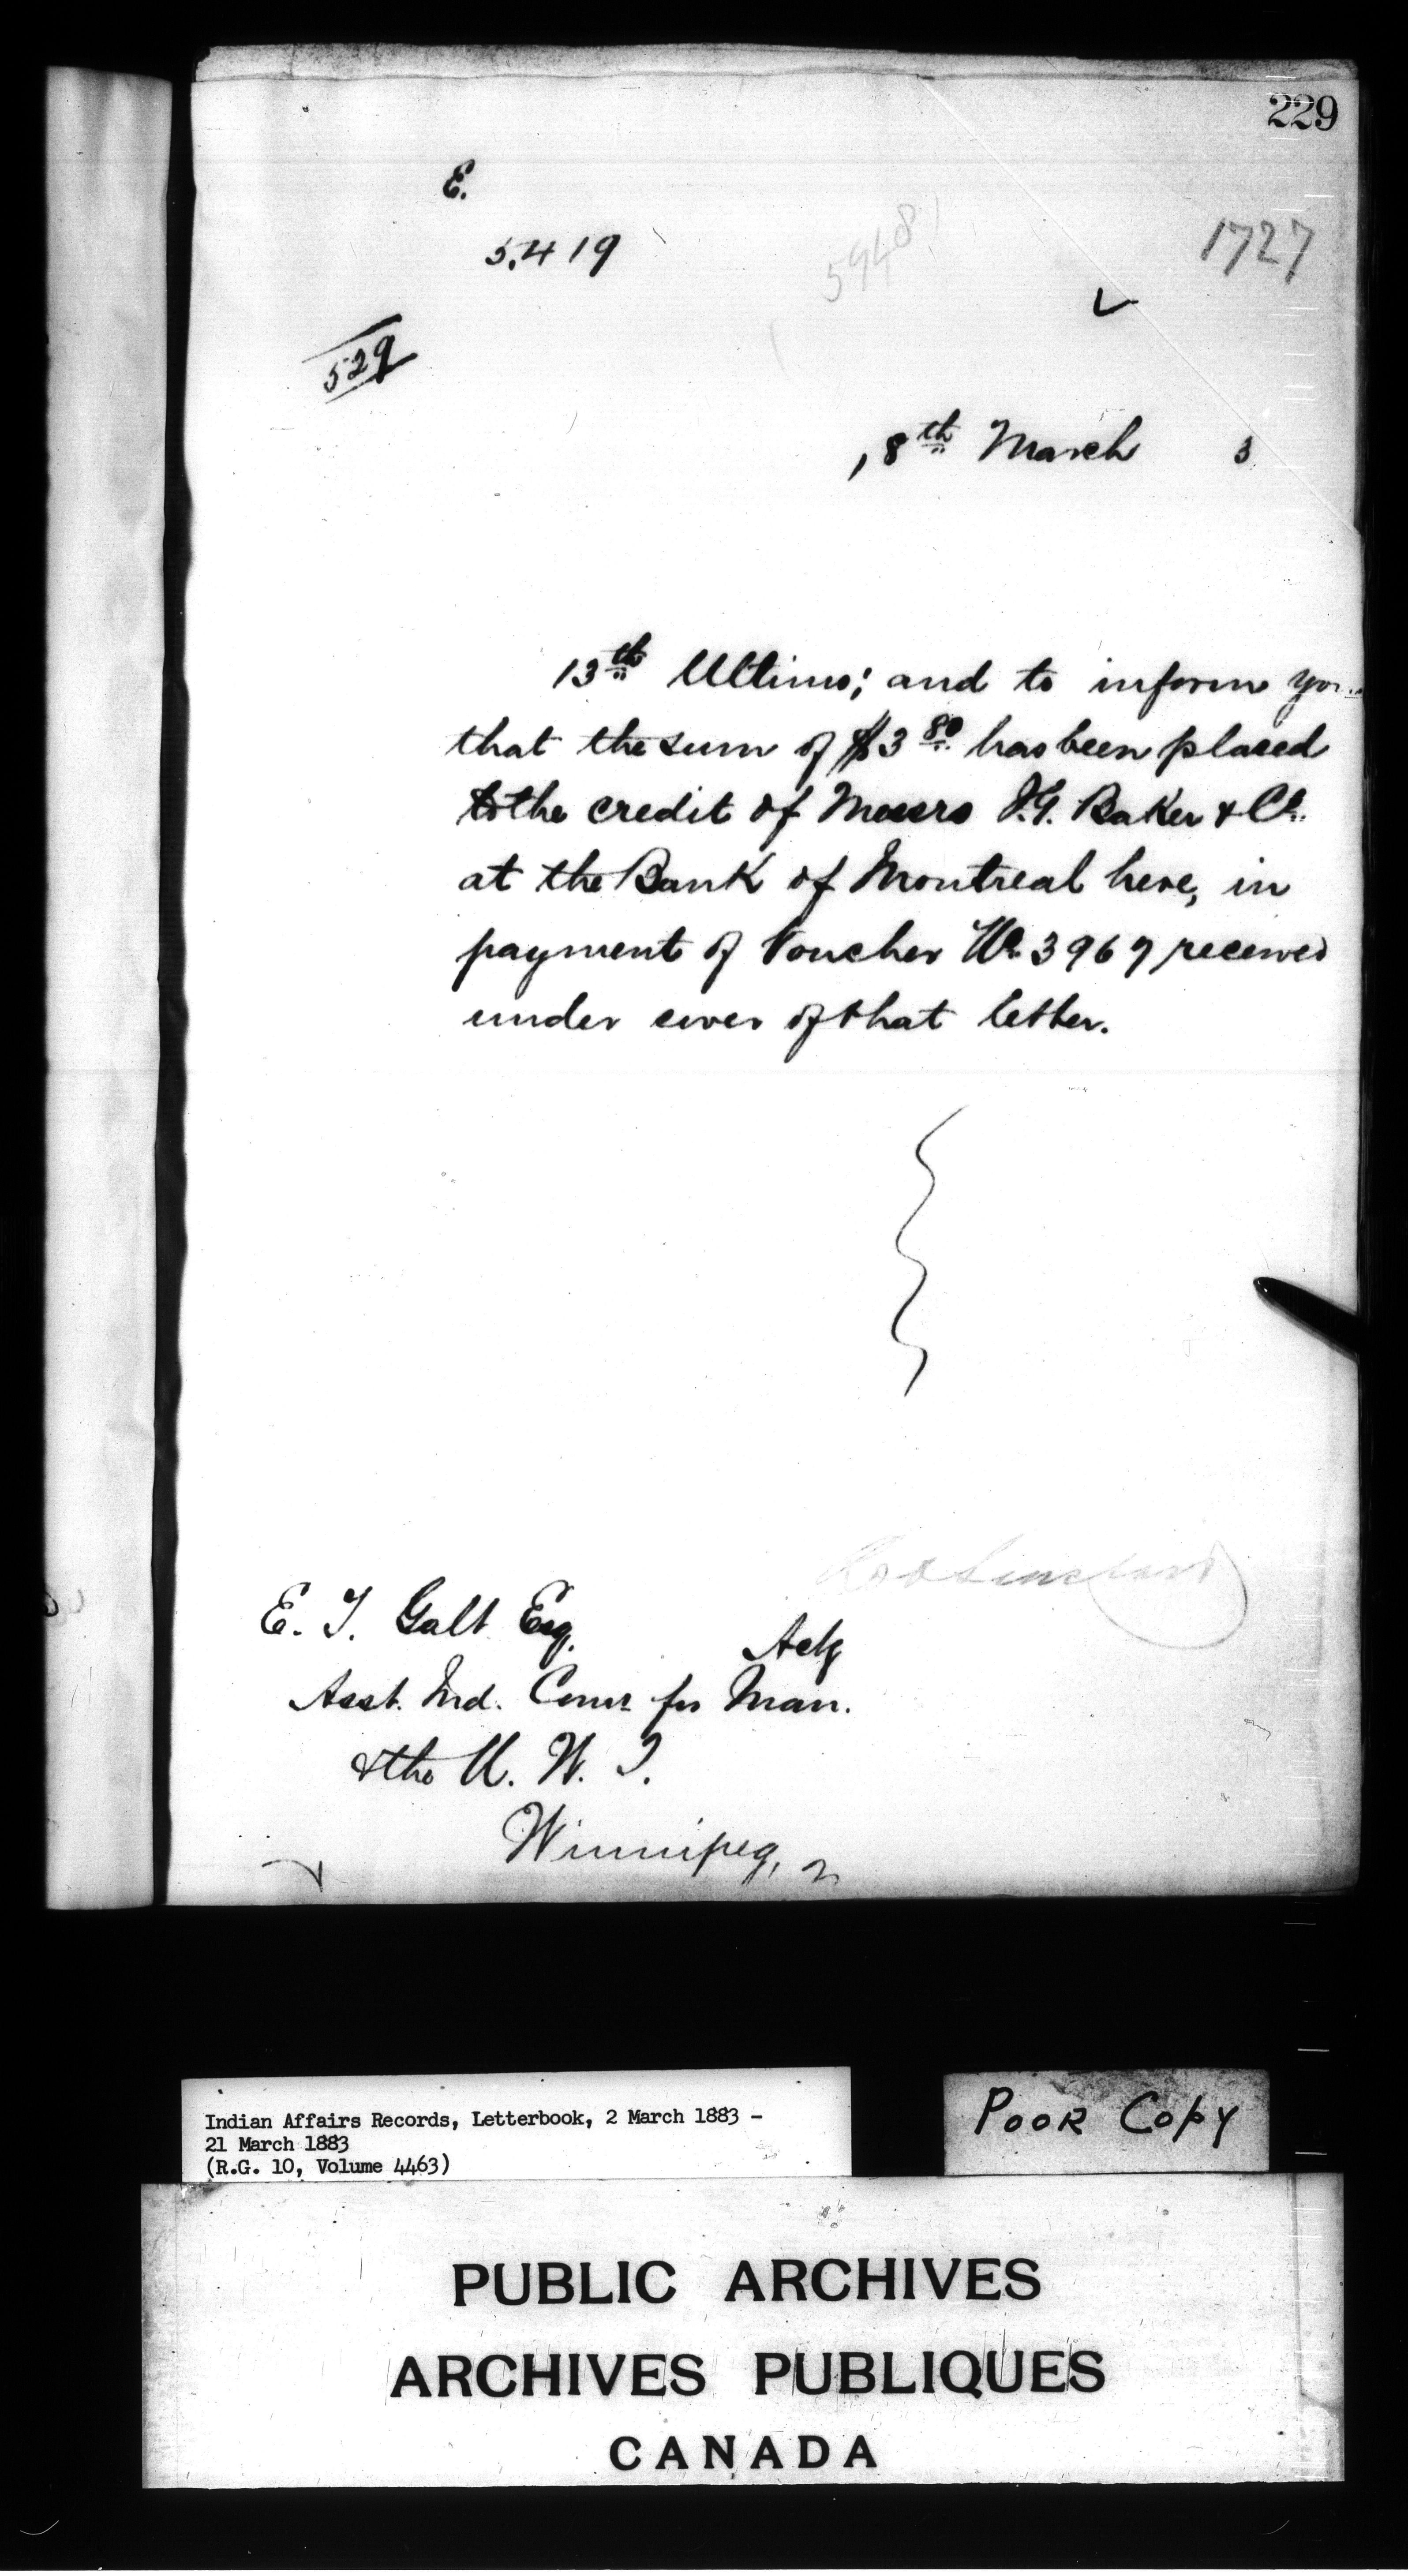 229
E.
5,419
5948
1727
529
8th March 3
13th Ultimo; and to inform you
that the sum of $3 80 has been placed
to the credit of Messrs I.G. Baker & Co.
at the Bank of Montreal here, in
payment of Voucher No. 3967 received
under cover of that letter.
E. T. Galt Esq.
Actg
Asst. Ind. Comr for Man.
& the N. W. T.
Winnipeg,
Indian Affairs Records, Letterbook, 2 March 1883 -
21 March 1883
(R.G. 10, Volume 4463)
POOR COPY
PUBLIC ARCHIVES
ARCHIVES PUBLIQUES
CANADA